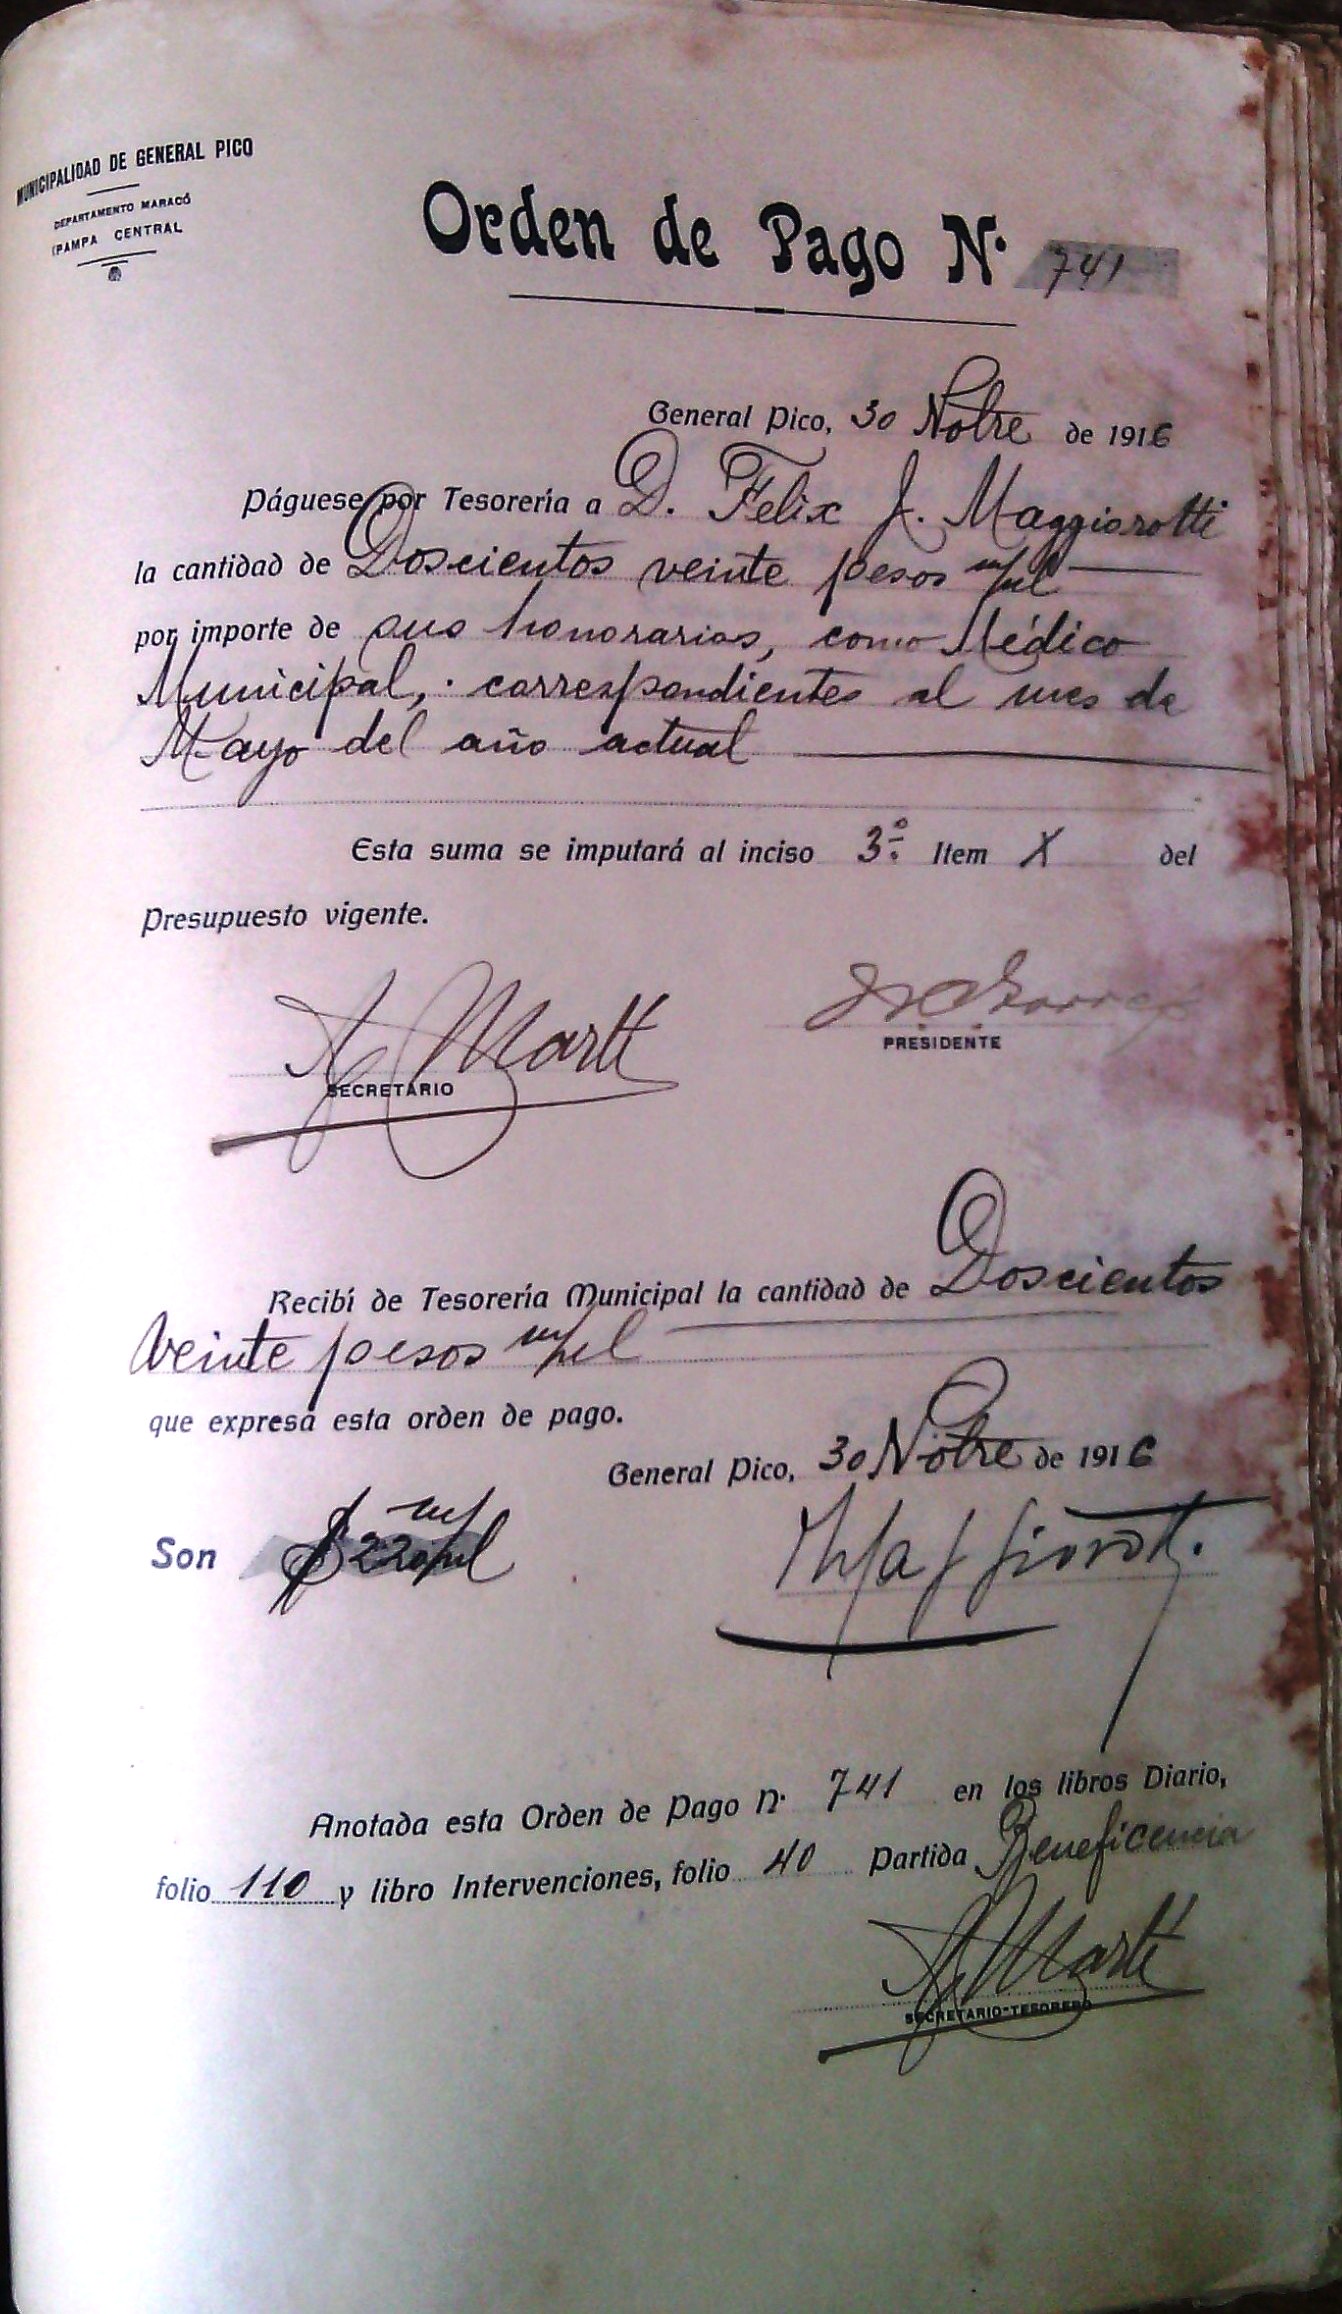 MUNICIPALIDAD DE GENERAL PICO
DEPARTAMENTO MARACÓ
(PAMPA CENTRAL
Orden de Pago N. 741
General Pico, 30 Nobre de 1916
Páguese por Tesorería a D. Felix J. Maggiorotti
la cantidad de Doscientos veinte pesos m/nl
por importe de sus honorarios, como Médico
Municipal, correspondientes al mes de
Mayo del año actual
Esta suma se imputará al inciso 3º Item X del
Presupuesto vigente.
A Martí
PRESIDENTE
SECRETARIO
Recibí de Tesorería Municipal la cantidad de Doscientos
veinte pesos m/nl
que expresa esta orden de pago.
General Pico, 30 Nobre de 1916
Son $ 220 m/nl
Maggiorotti
Anotada esta Orden de Pago N. 741 en los libros Diario,
folio 110 y libro Intervenciones, folio 40 Partida Beneficencia
A Martí
SECRETARIO-TESORERO